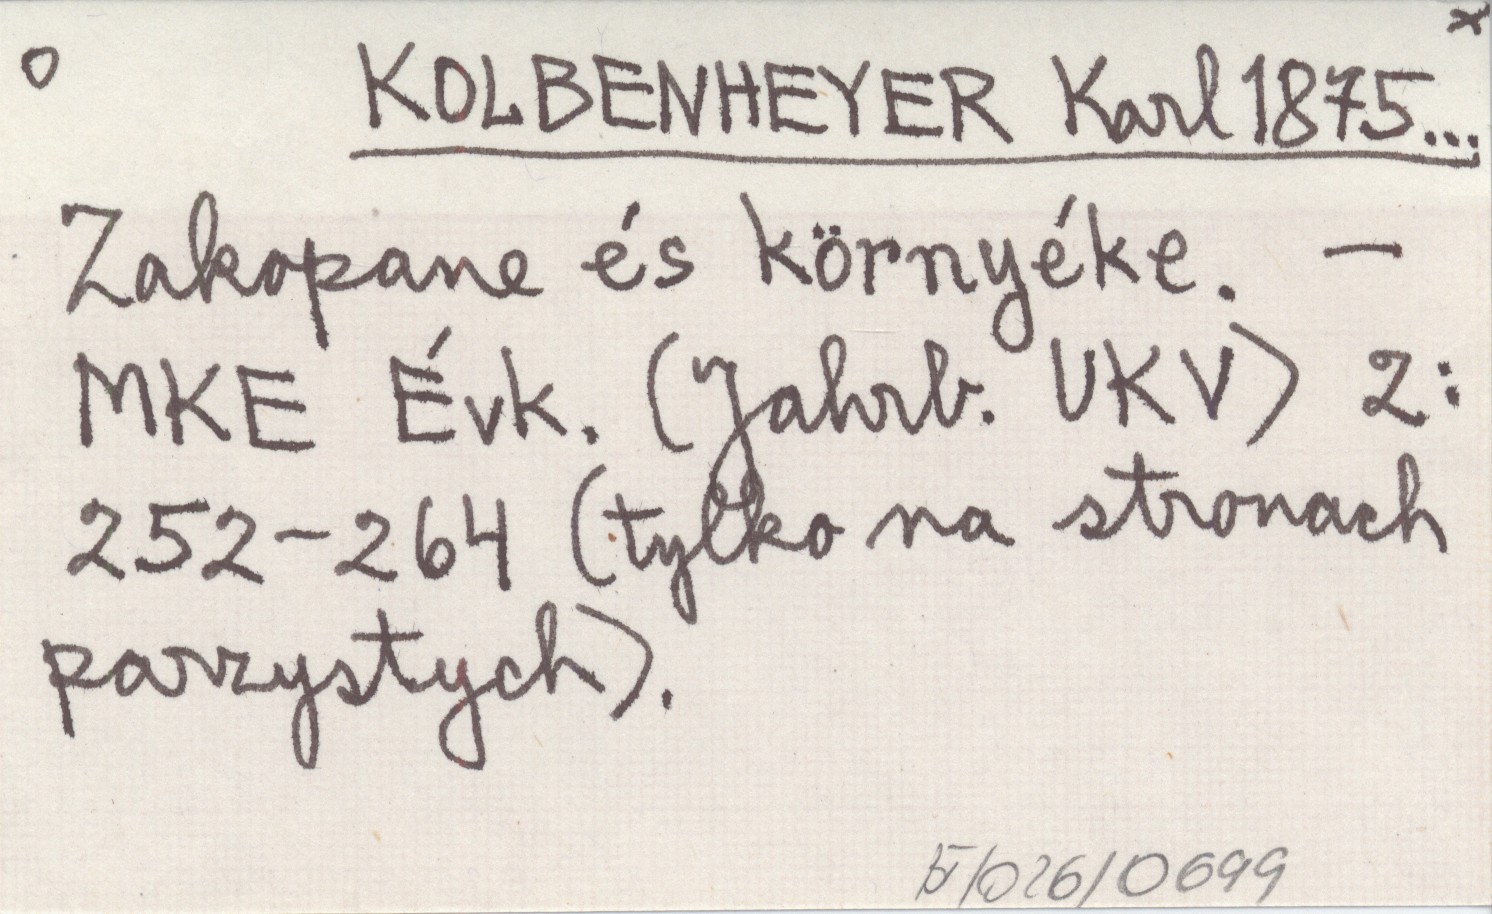 o KOLBENHEYER Karl 1875... x
Zakopane és környéke. —
MKE Évk. (Jahrb. UKV) 2:
252-264 (tylko na stronach
parzystych).
/026/0699